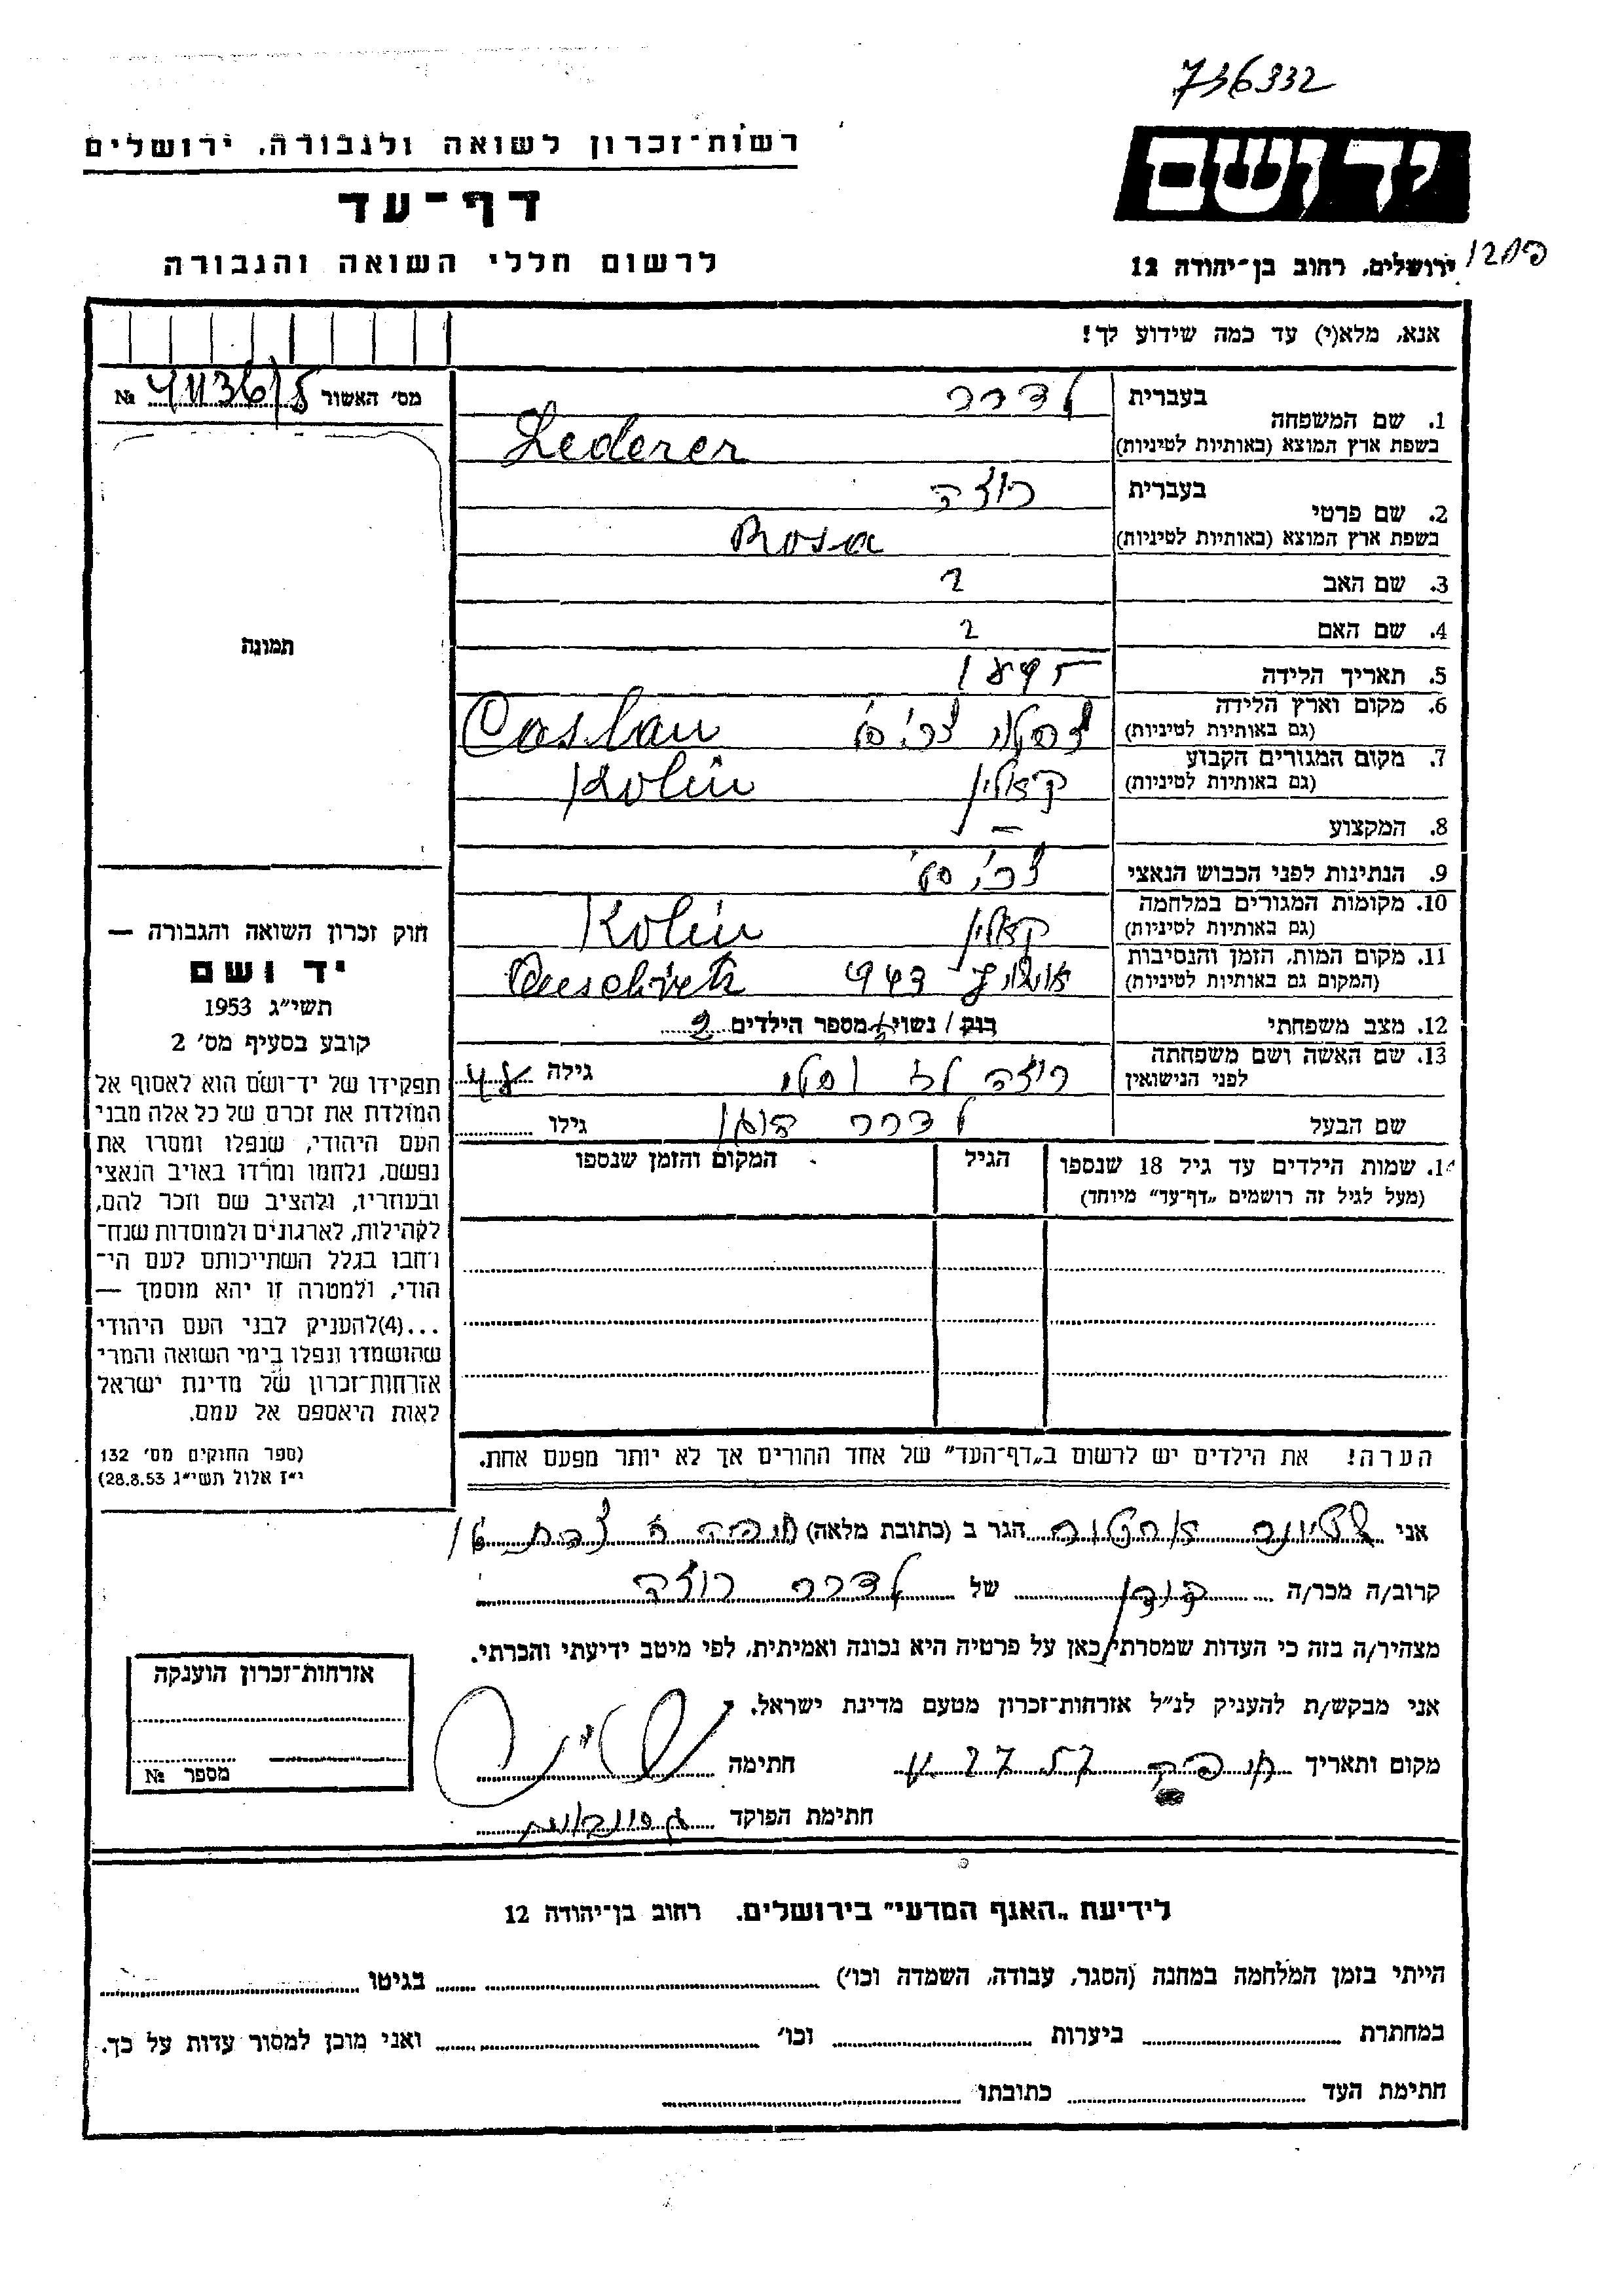 736332
יד ושם
רשות־זכרון לשואה ולגבורה, ירושלים
דף־עד
לרשום חללי השואה והגבורה
ירושלים, רחוב בן־יהודה 12
אנא, מלא(י) עד כמה שידוע לך!
מס׳ האשור №
1. שם המשפחה בעברית לדרר
בשפת ארץ המוצא (באותיות לטיניות) Lederer
2. שם פרטי בעברית רוזה
בשפת ארץ המוצא (באותיות לטיניות) Rosa
3. שם האב ?
4. שם האם ?
5. תאריך הלידה 1895
6. מקום וארץ הלידה
(גם באותיות לטיניות) Caslau
7. מקום המגורים הקבוע
(גם באותיות לטיניות) קאלין Kolin
8. המקצוע —
9. הנתינות לפני הכבוש הנאצי
10. מקומות המגורים במלחמה
(גם באותיות לטיניות) קאלין Kolin
11. מקום המות, הזמן והנסיבות
(המקום גם באותיות לטיניות) 943
12. מצב משפחתי רוק / נשוי מספר הילדים 2
13. שם האשה ושם משפחתה
לפני הנישואין רוזה גילה 48
שם הבעל לדרר גילו
14. שמות הילדים עד גיל 18 שנספו
(מעל לגיל זה רושמים „דף־עד” מיוחד)
הגיל
המקום והזמן שנספו
הערה! את הילדים יש לרשום ב„דף־העד” של אחד ההורים אך לא יותר מפעם אחת.
תמונה
חוק זכרון השואה והגבורה —
יד ושם
תשי״ג 1953
קובע בסעיף מס׳ 2
תפקידו של יד־ושם הוא לאסוף אל
המולדת את זכרם של כל אלה מבני
העם היהודי, שנפלו ומסרו את
נפשם, נלחמו ומרדו באויב הנאצי
ובעוזריו, ולהציב שם וזכר להם,
לקהילות, לארגונים ולמוסדות שנח־
רבו בגלל השתייכותם לעם הי־
הודי, ולמטרה זו יהא מוסמך —
...(4)להעניק לבני העם היהודי
שהושמדו ונפלו בימי השואה והמרי
אזרחות־זכרון של מדינת ישראל
לאות היאספם אל עמם.
(ספר החוקים מס׳ 132
י״ז אלול תשי״ג 28.8.53)
אני הגר ב (כתובת מלאה) 16
קרוב/ה מכר/ה של לדרר רוזה
מצהיר/ה בזה כי העדות שמסרתי כאן על פרטיה היא נכונה ואמיתית, לפי מיטב ידיעתי והכרתי.
אני מבקש/ת להעניק לנ״ל אזרחות־זכרון מטעם מדינת ישראל.
מקום ותאריך חתימה
חתימת הפוקד
אזרחות־זכרון הוענקה
מספר №
לידיעת „האגף המדעי” בירושלים, רחוב בן־יהודה 12
הייתי בזמן המלחמה במחנה (הסגר, עבודה, השמדה וכו׳) בגיטו
במחתרת ביערות וכו׳ ואני מוכן למסור עדות על כך.
חתימת העד כתובתו